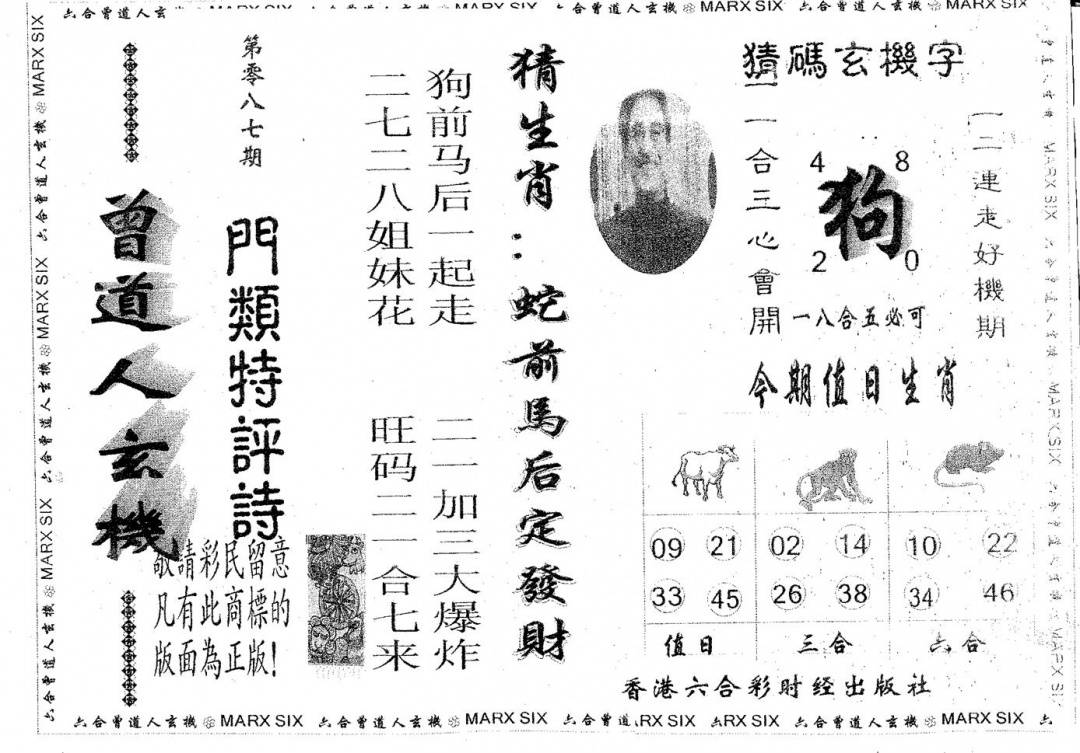 六合曾道人玄 MARX SIX 六合曾道人玄機 MARX SIX 六合曾道人玄機 MARX SIX 六合曾道人玄機 MARX SIX
六合曾道人玄機 MARX SIX 六合曾道人玄機 MARX SIX 六合曾道人玄機 MARX SIX
猜碼玄機字
一一合三心會開
二連走好機期
4 8
狗
2 0
一八合五必可
今期值日生肖
09 21 02 14 10 22
33 45 26 38 34 46
值日 三合 六合
香港六合彩财经出版社
猜生肖:蛇前馬后定發財
狗前马后一起走
二一加三大爆炸
二七二八姐妹花
旺码二一合七来
第零八七期
門類特評詩
曾道人玄機
敬請彩民留意
凡有此商標的
版面為正版!
MARX SIX MARX SIX MARX SIX
六合曾道人玄機 MARX SIX 六合曾道人玄機 MARX SIX 六合曾道 RX SIX RX SIX 六合曾道人玄機 MARX SIX 六